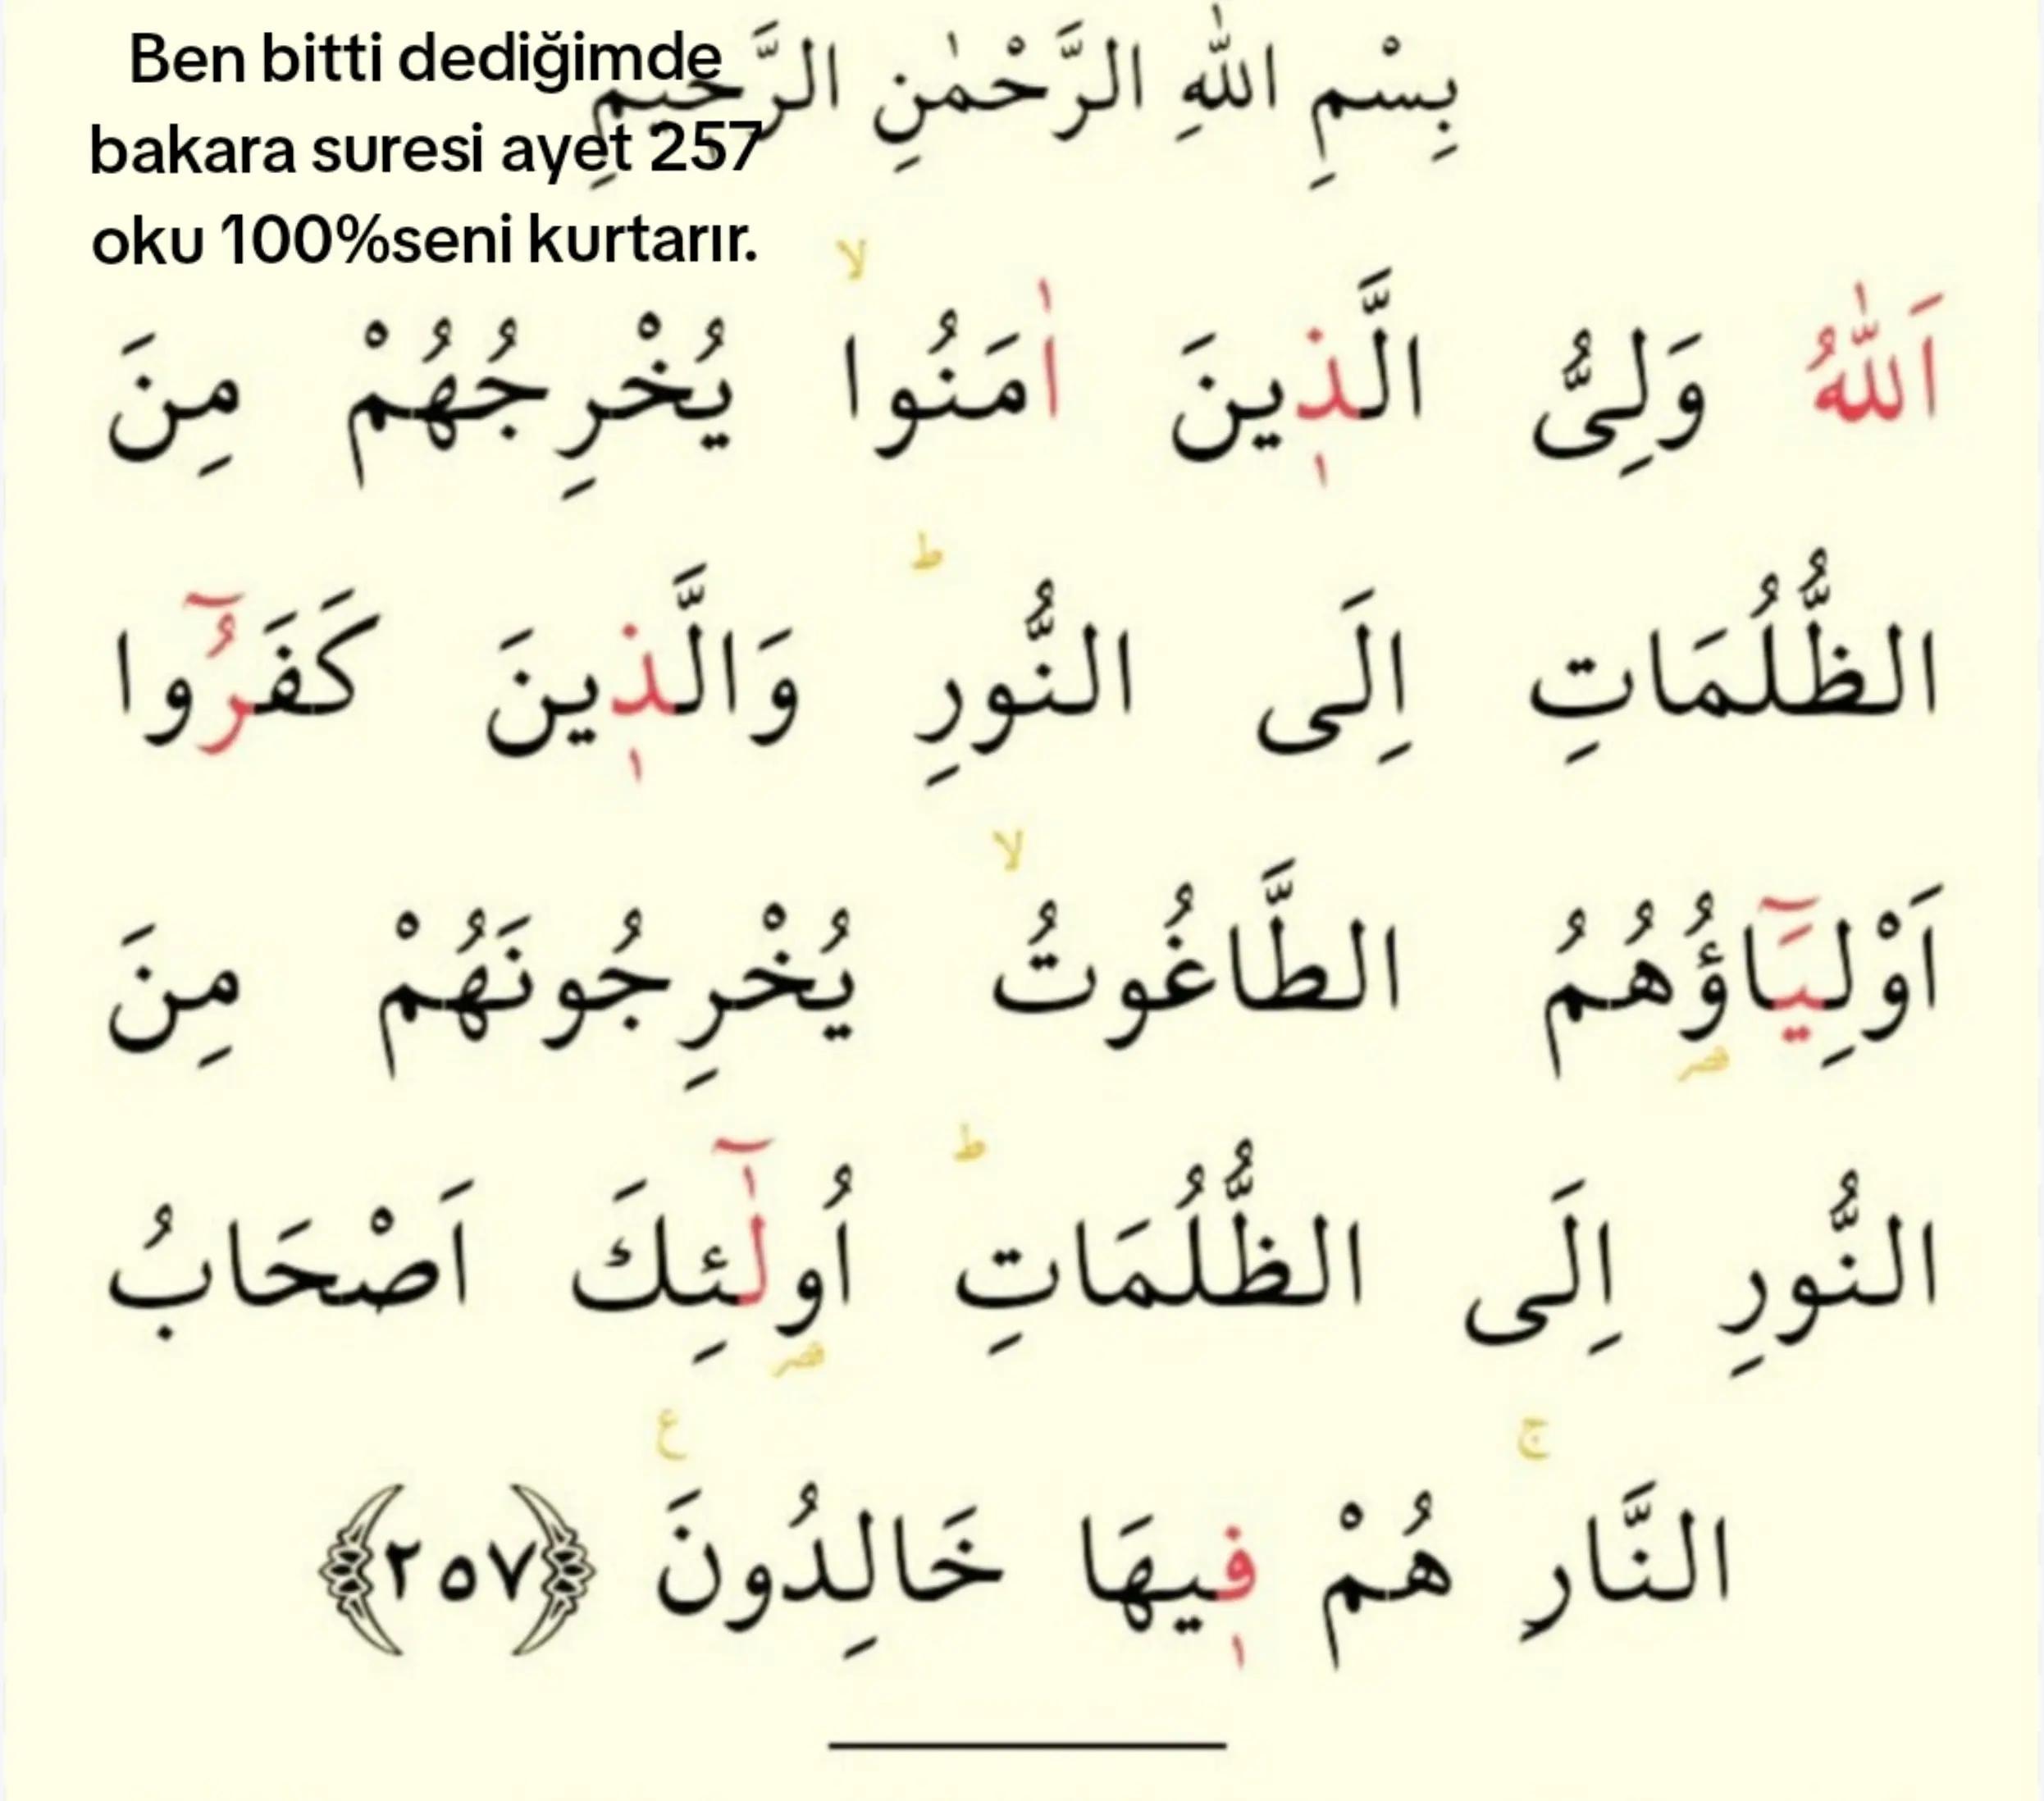 Ben bitti dediğimde
bakara suresi ayet 257
oku 100%seni kurtarır.
بِسْمِ اللّٰهِ الرَّحْمٰنِ الرَّحٖيمِ
اَللّٰهُ وَلِىُّ الَّذٖينَ اٰمَنُوا ۙ يُخْرِجُهُمْ مِنَ
الظُّلُمَاتِ اِلَى النُّورِ ۜ وَالَّذٖينَ كَفَرُٓوا
اَوْلِيَٓاؤُهُمُ الطَّاغُوتُ ۙ يُخْرِجُونَهُمْ مِنَ
النُّورِ اِلَى الظُّلُمَاتِ ۜ اُولٰٓئِكَ اَصْحَابُ
النَّارِ ۚ هُمْ فٖيهَا خَالِدُونَ ع ﴿٢٥٧﴾